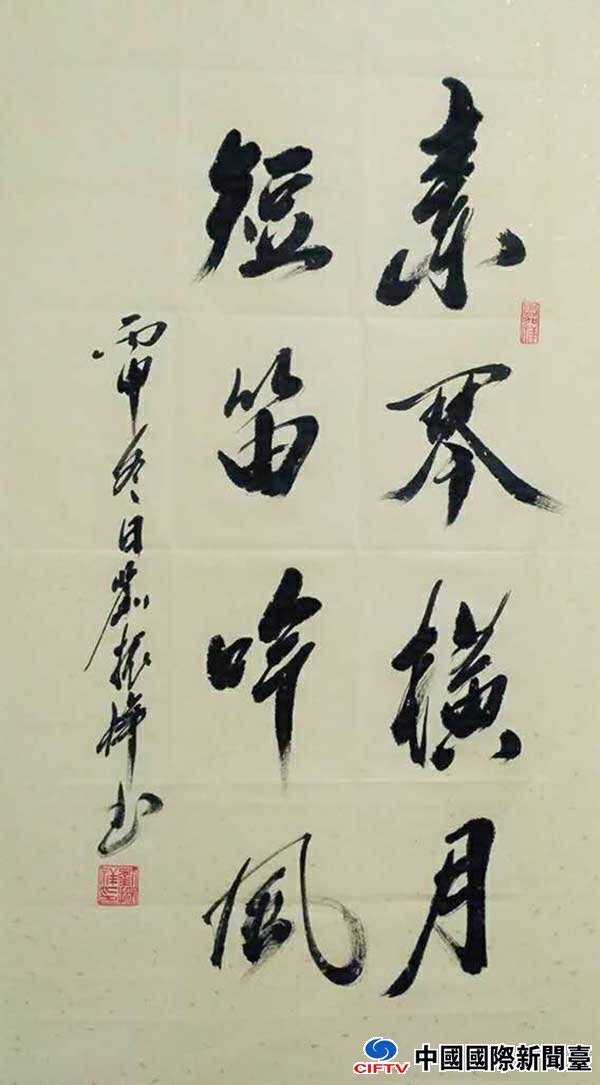 素琴横月
短笛吟風
丙申冬日劉振祥书
CIFTV 中國國際新聞臺